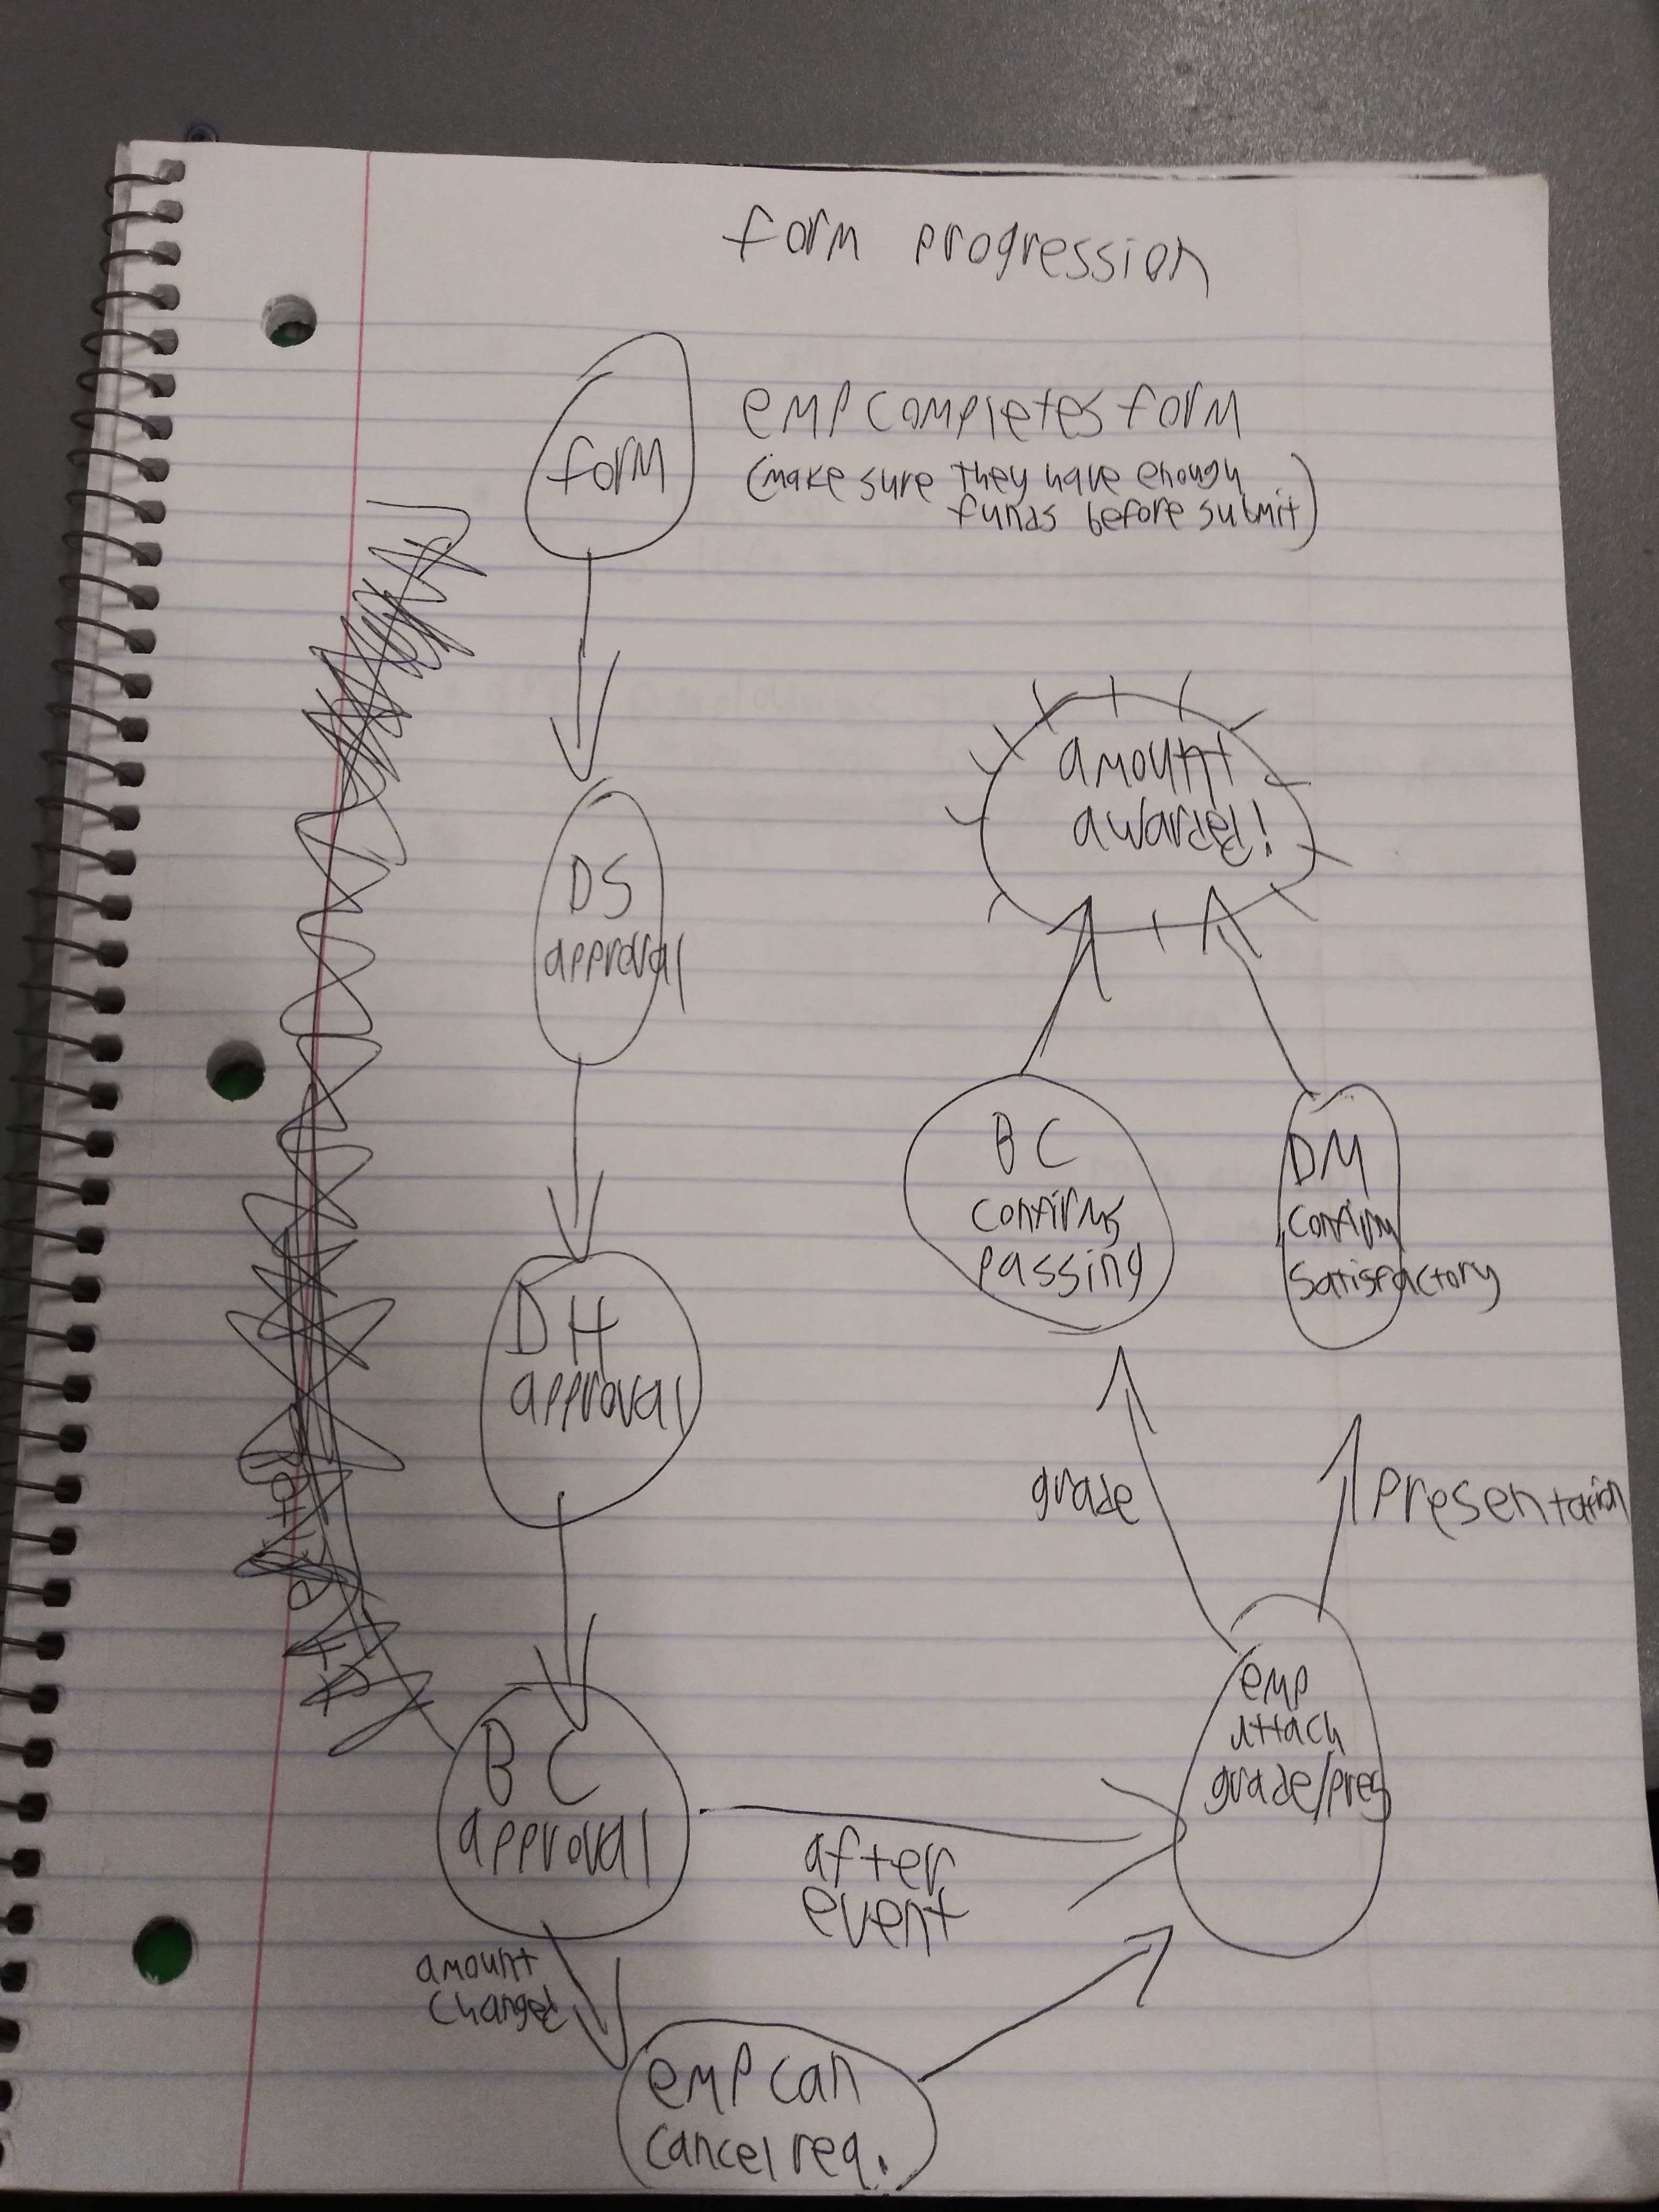 form progression
form
emp completes form
(make sure they have enough
funds before submit)
DS
approval
DH
approval
BC
approval
after
event
amount
changed
emp can
cancel req.
emp
attach
grade/pres
grade
presentation
BC
confirms
passing
DM
confirm
satisfactory
amount
awarded!